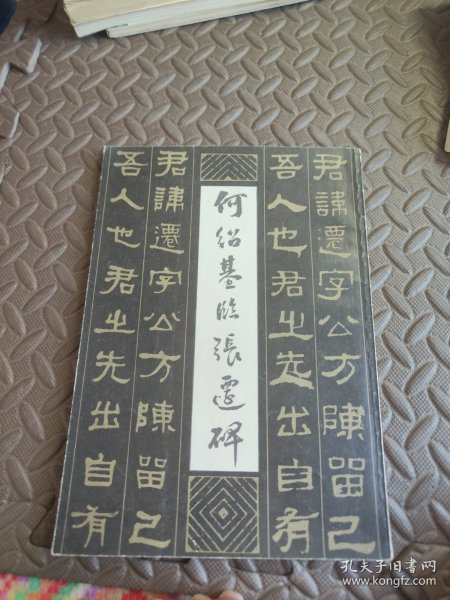 何紹基臨張遷碑
君諱遷字公方陳留己
吾人也君之先出自有
君諱遷字公方陳留己
吾人也君之先出自有
孔夫子旧书网
www.kongfz.com